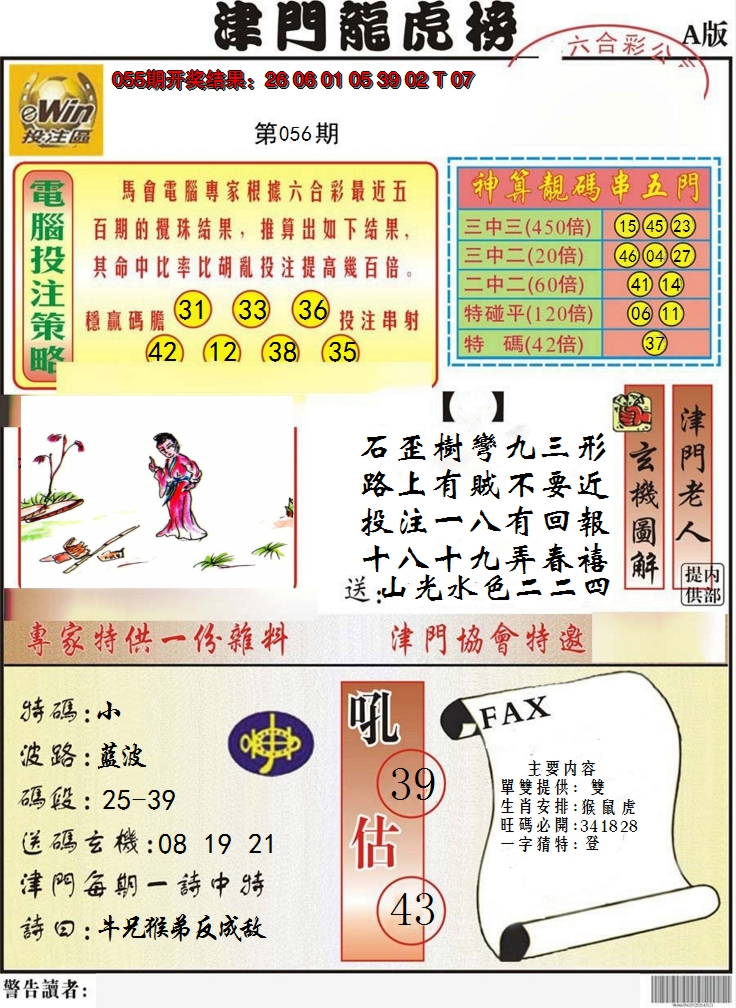 津門龍虎榜
A版
六合彩公
055期开奖结果：26 06 01 05 39 02 T 07
eWin
投注區
第056期
電腦投注策略
馬會電腦專家根據六合彩最近五
百期的攪珠结果，推算出如下结果，
其命中比率比胡亂投注提高幾百倍。
穩贏碼膽 31 33 36 投注串射
42 12 38 35
神算靚碼串五門
三中三(450倍) 15 45 23
三中二(20倍) 46 04 27
二中二(60倍) 41 14
特碰平(120倍) 06 11
特 碼(42倍) 37
【 】
石歪樹彎九三形
路上有賊不要近
投注一八有回報
十八十九弄春禧
送:山光水色二二四
玄機圖解
津門老人
内部提供
專家特供一份雜料
津門協會特邀
特碼:小
波路:藍波
碼段:25-39
送碼玄機:08 19 21
津門每期一詩中特
詩曰:牛兄猴弟反成敌
吼
39
估
43
FAX
主要内容
單雙提供：雙
生肖安排:猴鼠虎
旺碼必開:341828
一字猜特：登
警告讀者：